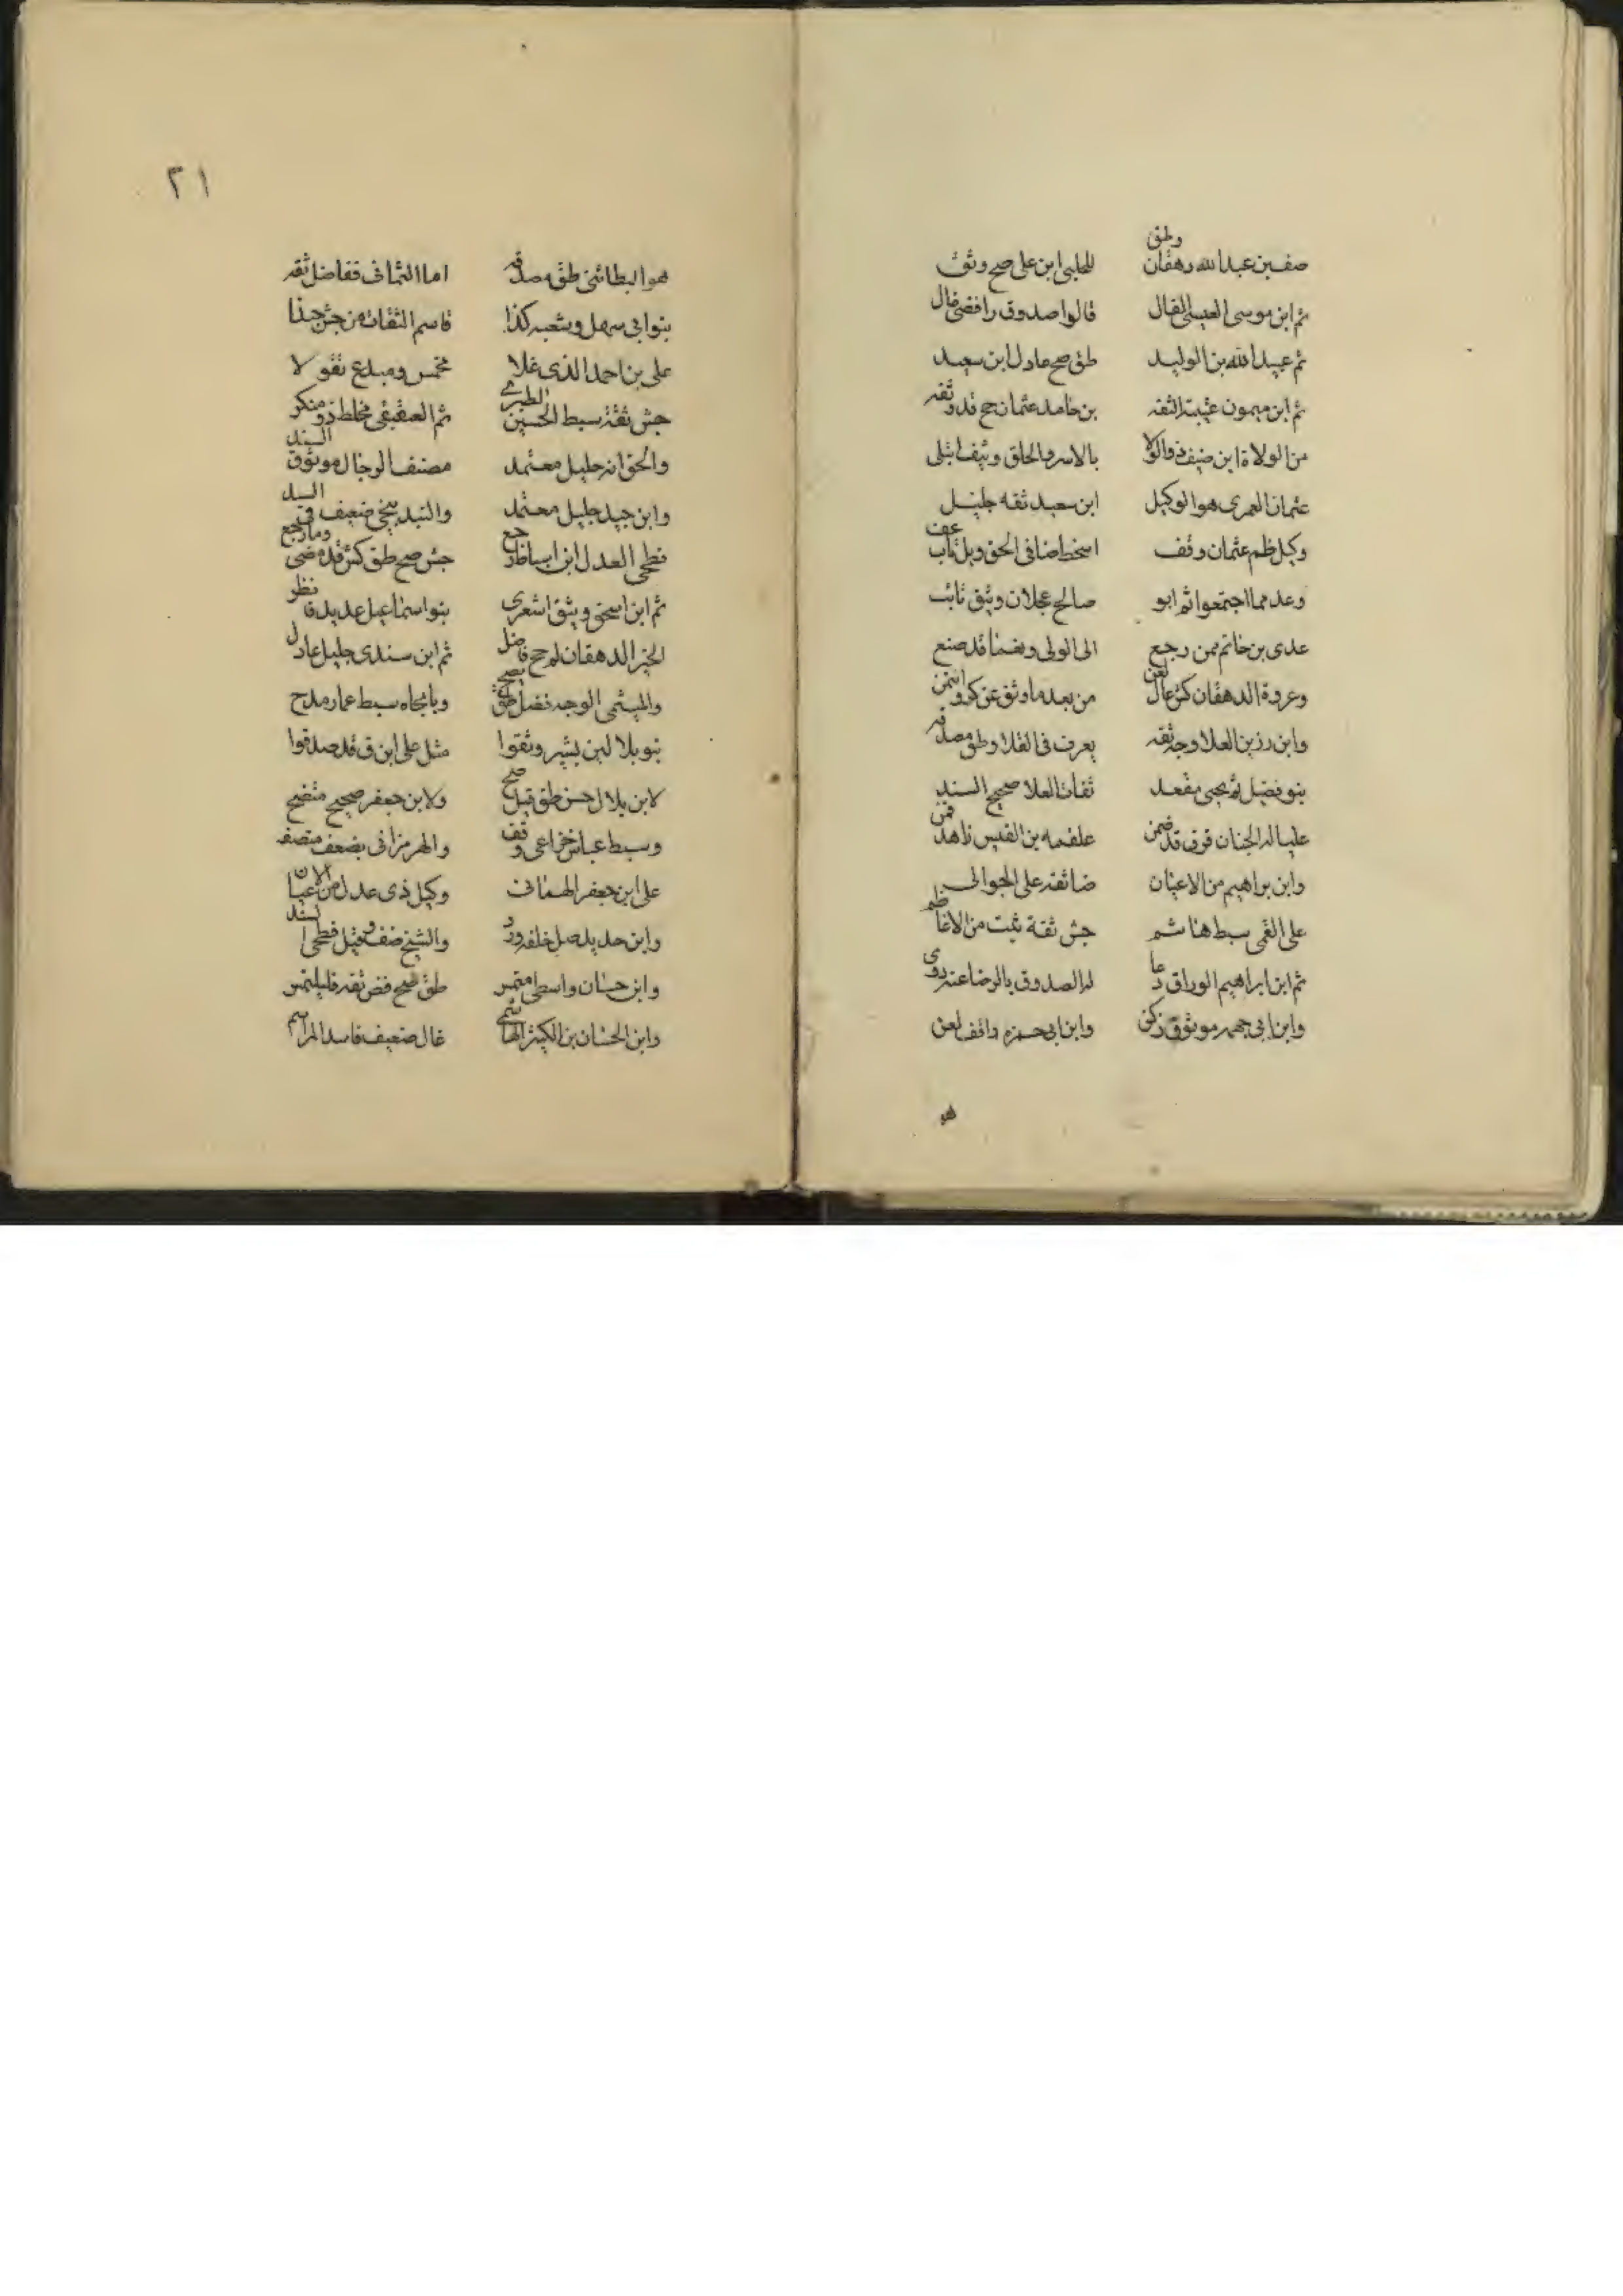 صفين عبد الله دهقان وطق للحلبي ابن علي صح وثق
ثم ابن موسى العبسي القال قالوا صدوق رافضي غال
ثم عبيد الله بن الوليد طق صح عادل ابن سعيد
ثم ابن ميمون الثقه بن حامد عثمان جح قد وثقه
من الولاة ابن بالاسر والحلق ابتلى
عثمان العمرى هو الوكيل ابن سعيد ثقه جليل
وكيل ظم عثمان وقف اسخط ضا في الحق وبل تاب
وعد مما اجتمعوا ثم ابو صالح عجلان وثق
عدى بن حاتم ممن رجع الى الولى ونعما قد صنع
وعروة الدهقان كر غال لعن من بعد ما وثق عن كرو
وابن رزين العلا وجه ثقه يعرف في القلا وطق مصدقه
بنو فضيل ثم يحيى مقعد ثقات العلا صحيح السند
عليا له الجنان قوف قد ضمن علقمه بن القيس زاهد قمن
وابن براهيم من الاعيان ضا ثقه على الجوانى
على القمى سبط هاشم جش ثقة ثبت من الاعاظم
ثم ابن ابراهيم الوراق دعا له الصدوق بالرضا عنه روى
وابن ابى جهمه موثوق زكن وابن ابى حمزه واقف لعن
هو
٢١
هو البطائنى طق مصدقه اما الثمالى ففاضل ثقه
بنو ابى سهل وشعبه كذا قاسم الثقات من جش
على بن احمد الذى غلا مخمس ومبدع
جش ثقة سبط الحسين الطبرى ثم العقيقى مخلط ذو منكر
والحق انه جليل معتمد مصنف الرجال موثوق السند
وابن جيد جليل معتمد ضعيف فى السند
فطحى العدل ابن اسباط رجع جش صح طق كش قد مضى وما رجع
ثم ابن اسحق وثق اشعرى بنو اسماعيل عديد فانظر
الخير الدهقان لم جح فاضل ثم ابن سندى جليل عادل
والميثمى الوجه فضل سبط عمار مدح
بنو بلال بن بشير وثقوا مثل على ابن ق قد صدقوا
لابن بلال حسن طق قيل صح ولابن جعفر صحيح متضح
وسبط عباس خزاعى وقف والهرمزانى بضعف متصف
على ابن جعفر الهمانى وكيل ذى عدل من الاعيان
وابن حديد والشيخ ضعف وقيل فطحى
وابن حسان واسطى معتمر طق صح قض ثقه
وابن الحسان بن الكثير الهاشمى غال ضعيف فاسد المراسم